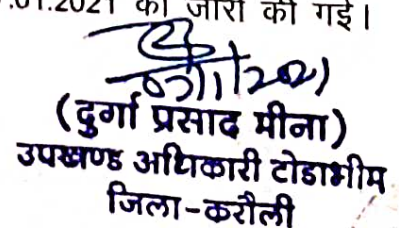 .01.2021 को जारी की गई।
(दुर्गा प्रसाद मीना)
उपखण्ड अधिकारी टोडाभीम
जिला-करौली